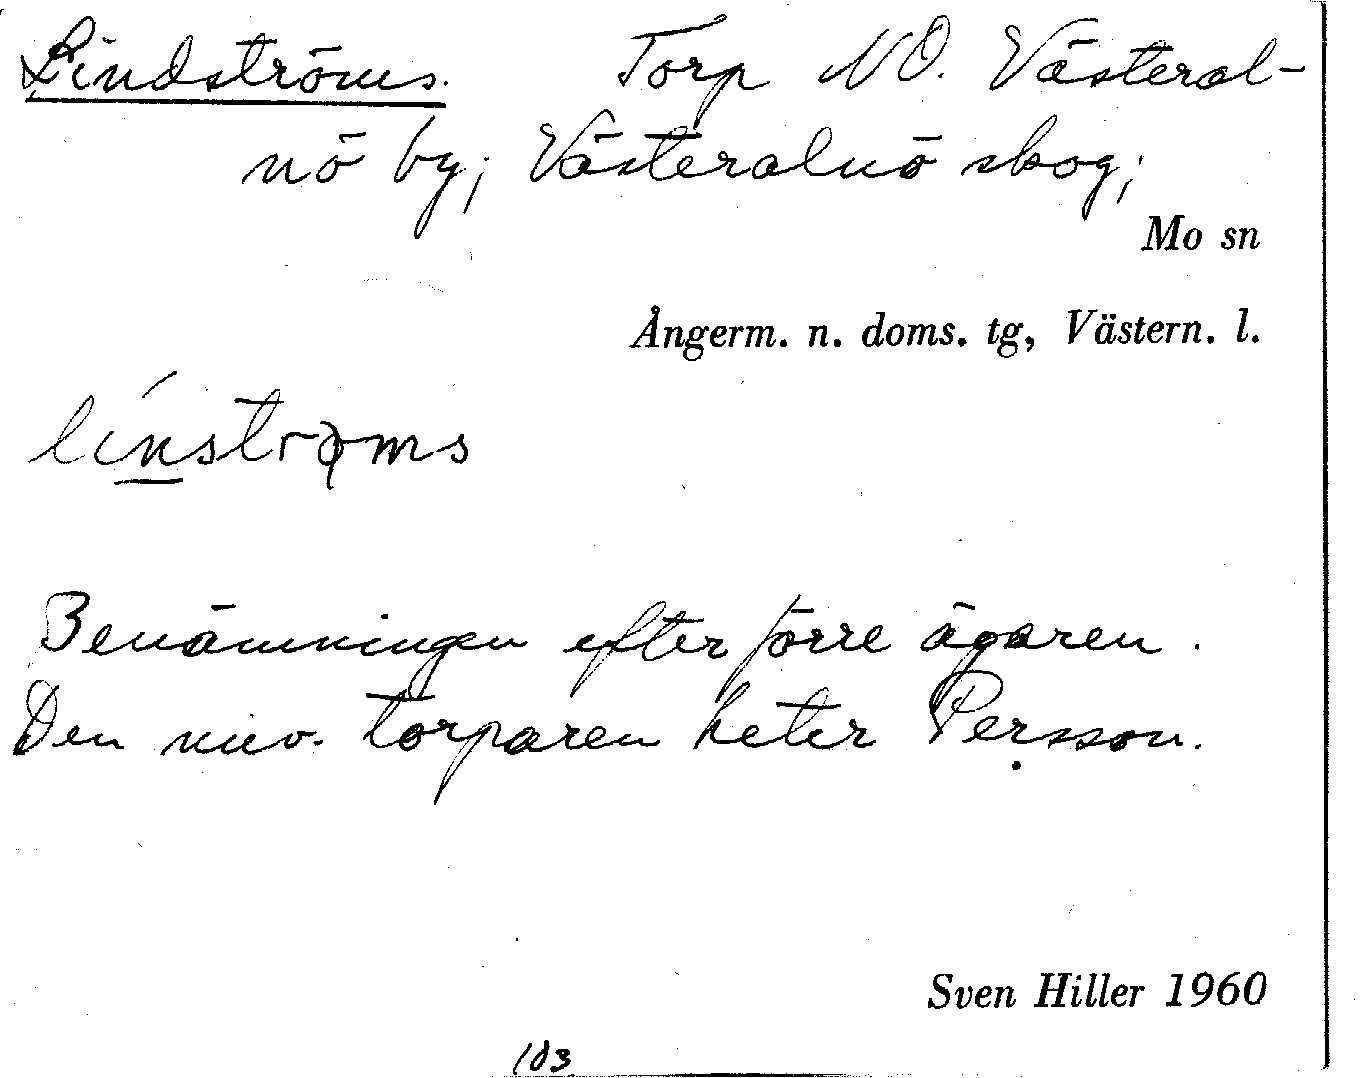 Lindströms. Torp NO. Västeral-
nö by; Västeralnö skog;
Mo sn
Ångerm. n. doms. tg, Västern. l.
Benämningen efter förre ägaren.
Den nuv. torparen heter Persson.
Sven Hiller 1960
103